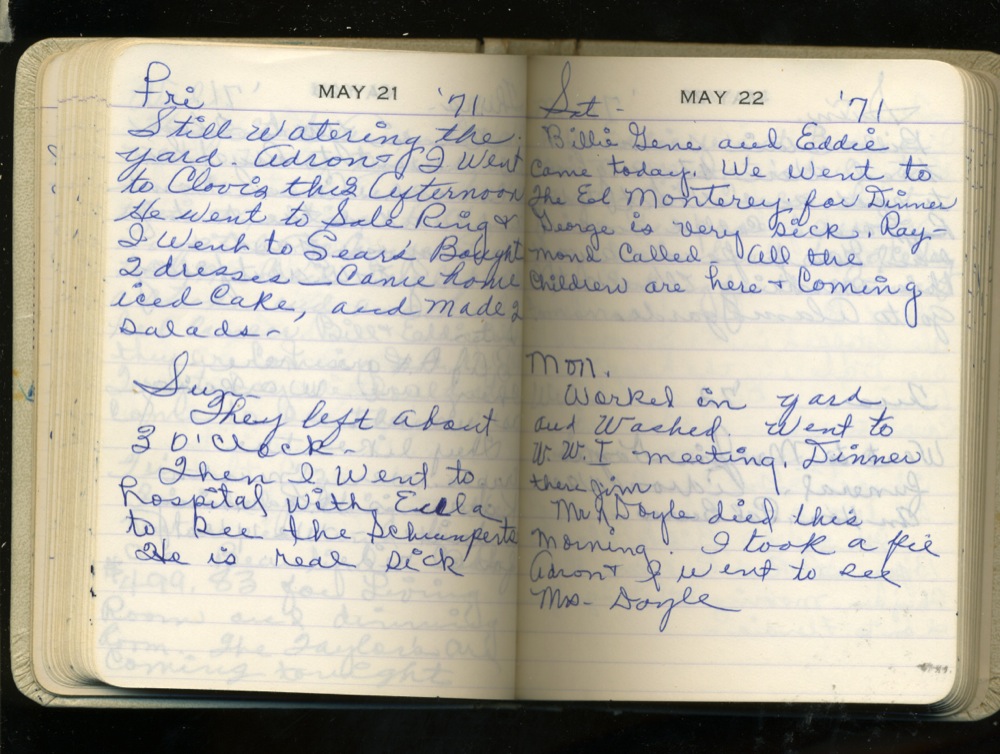 MAY 21
Fri '71
Still watering the
yard. Adron + I Went
to Clovis this Afternoon
He went to Sale Ring &
I Went to Sears Bought
2 dresses - Came home
iced Cake, and made 2
salads -
Sun.
They left about
3 O'Clock -
Then I Went to
hospital with Eula
to see the Schumperts
He is real sick
MAY 22
Sat - '71
Billie Gene and Eddie
came today. We went to
the El Monterey for Dinner
George is very sick. Ray-
mond Called - All the
Children are here + Coming
Mon.
Worked in yard
and Washed. Went to
W.W.I meeting. Dinner
there
Mr Doyle died this
morning. I took a pie
Adron + I went to see
Mrs - Doyle